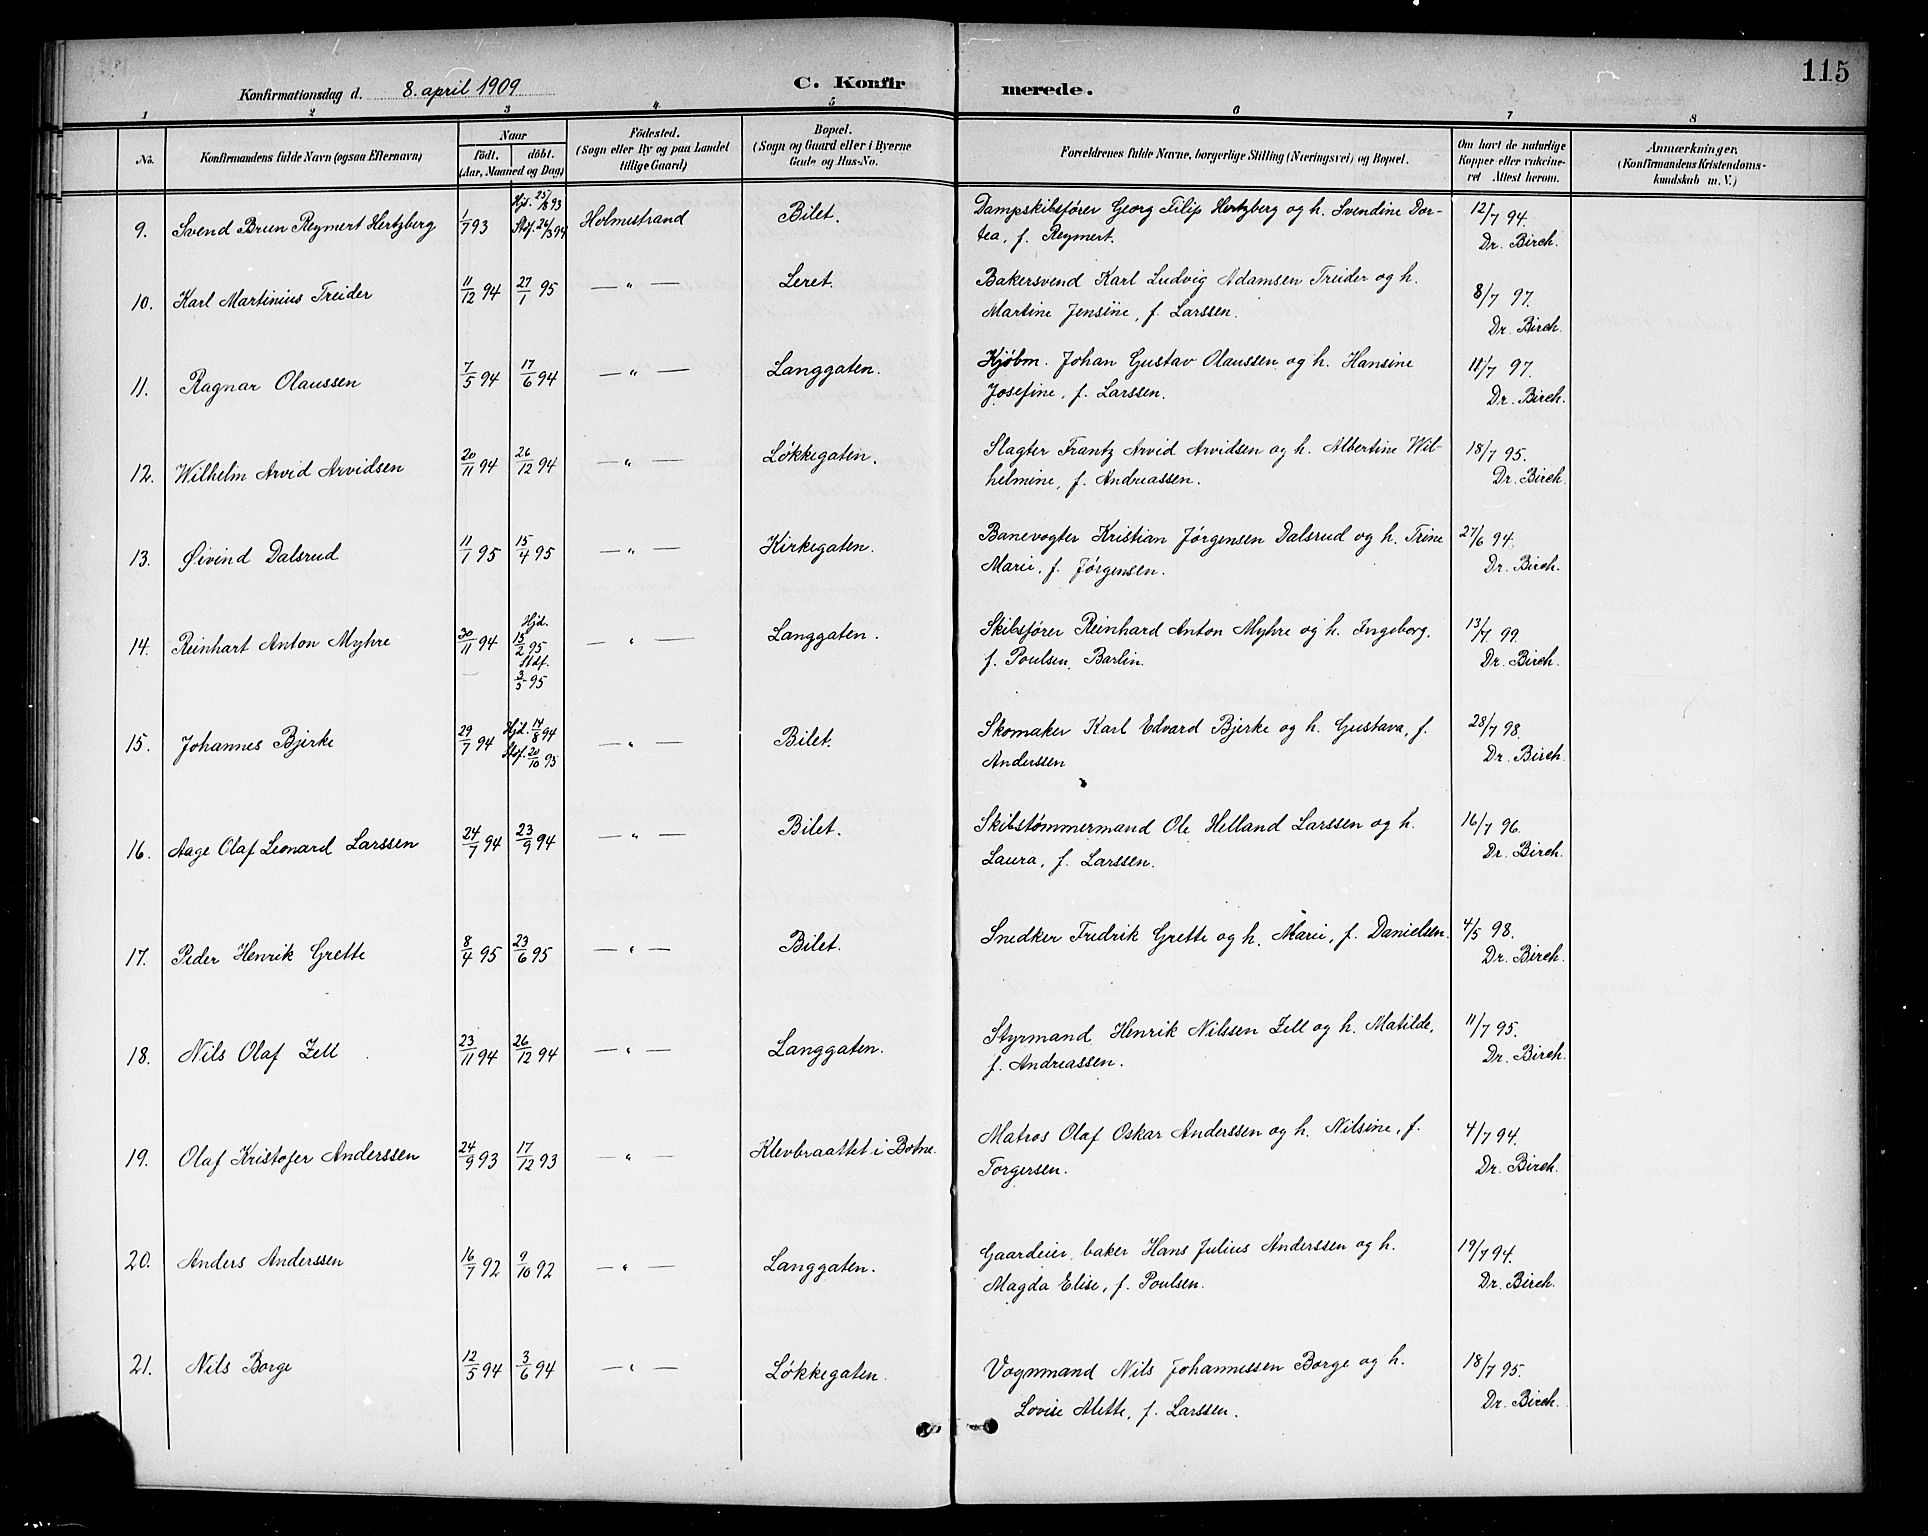 115
Konfirmationsdag d. 8. april 1909
C. Konfirmerede.
1 2 3 4 5 6 7 8
No. Konfirmandens fulde Navn (ogsaa Efternavn) Naar födt. döbt. (Aar, Maaned og Dag) Födested. (Sogn eller By og paa Landet tillige Gaard) Bopæl. (Sogn og Gaard eller i Byerne Gade og Hus-No. Forældrenes fulde Navne, borgerlige Stilling (Næringsvei) og Bopæl. Om havt de naturlige Kopper eller vakcineret Attest herom. Anmærkninger. (Konfirmandens Kristendomskundskab m. V.)
9. Svend Brun Reymert Hertzberg 1/7 93 Hjd. 25/8 93 Holmestrand Bilet. Dampskibsfører Georg Filip Hertzberg og h. Svendine Dor- 12/7 94.
tea, f. Reymert. Dr. Birch.
10. Karl Martinius Treider 11/12 94 27/1 95 — " — Leret. Bakersvend Karl Ludvig Adamsen Treider og h. 8/7 97.
Martine Jensine, f. Larssen. Dr. Birch.
11. Ragnar Olaussen 7/5 94 17/6 94 — " — Langgaten. Kjøbm. Johan Gustav Olaussen og h. Hansine 11/7 97.
Josefine, f. Larssen. Dr. Birch.
12. Wilhelm Arvid Arvidsen 20/11 94 26/12 94 — " — Løkkegaten. Slagter Frantz Arvid Arvidsen og h. Albertine Wil- 18/7 95.
helmine, f. Andreassen. Dr. Birch.
13. Øivind Dalsrud 11/1 95 15/4 95 — " — Kirkegaten. Banevogter Kristian Jørgensen Dalsrud og h. Trine 27/6 94.
Marie, f. Jørgensen. Dr. Birch.
14. Reinhart Anton Myhre 30/11 94 Hjd. 15/2 95 Stdf. 3/5 95 — " — Langgaten. Skibsfører Reinhard Anton Myhre og h. Ingeborg, 13/7 99.
f. Poulsen Barlin. Dr. Birch.
15. Johannes Bjerke 29/7 94 Hjd. 17/8 94 Stof. 20/10 95 — " — Bilet. Skomaker Karl Edvard Bjerke og h. Gustava, f. 28/7 98.
Anderssen Dr. Birch.
16. Aage Olaf Leonard Larssen 24/7 94 23/9 94 — " — Bilet. Skibstømmermand Ole Helland Larssen og h. 16/7 96.
Laura, f. Larssen. Dr. Birch.
17. Peder Henrik Grette 8/4 95 23/6 95 — " — Bilet. Snedker Fredrik Grette og h. Marie, f. Danielsen. 4/5 98.
Dr. Birch.
18. Nils Olaf Zell 23/11 94 26/12 94 — " — Langgaten. Styrmand Henrik Nilssen Zell og h. Matilde, 11/7 95.
f. Andreassen. Dr. Birch.
19. Olaf Kristofer Anderssen 24/9 93 17/12 93 — " — Klevbraattet i Botne. Matros Olaf Oskar Anderssen og h. Nilsine, f. 4/7 94.
Torgersen. Dr. Birch.
20. Anders Anderssen 16/7 92 9/10 92 — " — Langgaten. Gaardeier, baker Hans Julius Anderssen og h. 19/7 94.
Magda Elise, f. Poulsen. Dr. Birch.
21. Nils Borge 12/5 94 3/6 94 — " — Løkkegaten. Vognmand Nils Johannessen Borge og h. 18/7 95.
Lovise Alette, f. Larssen. Dr. Birch.